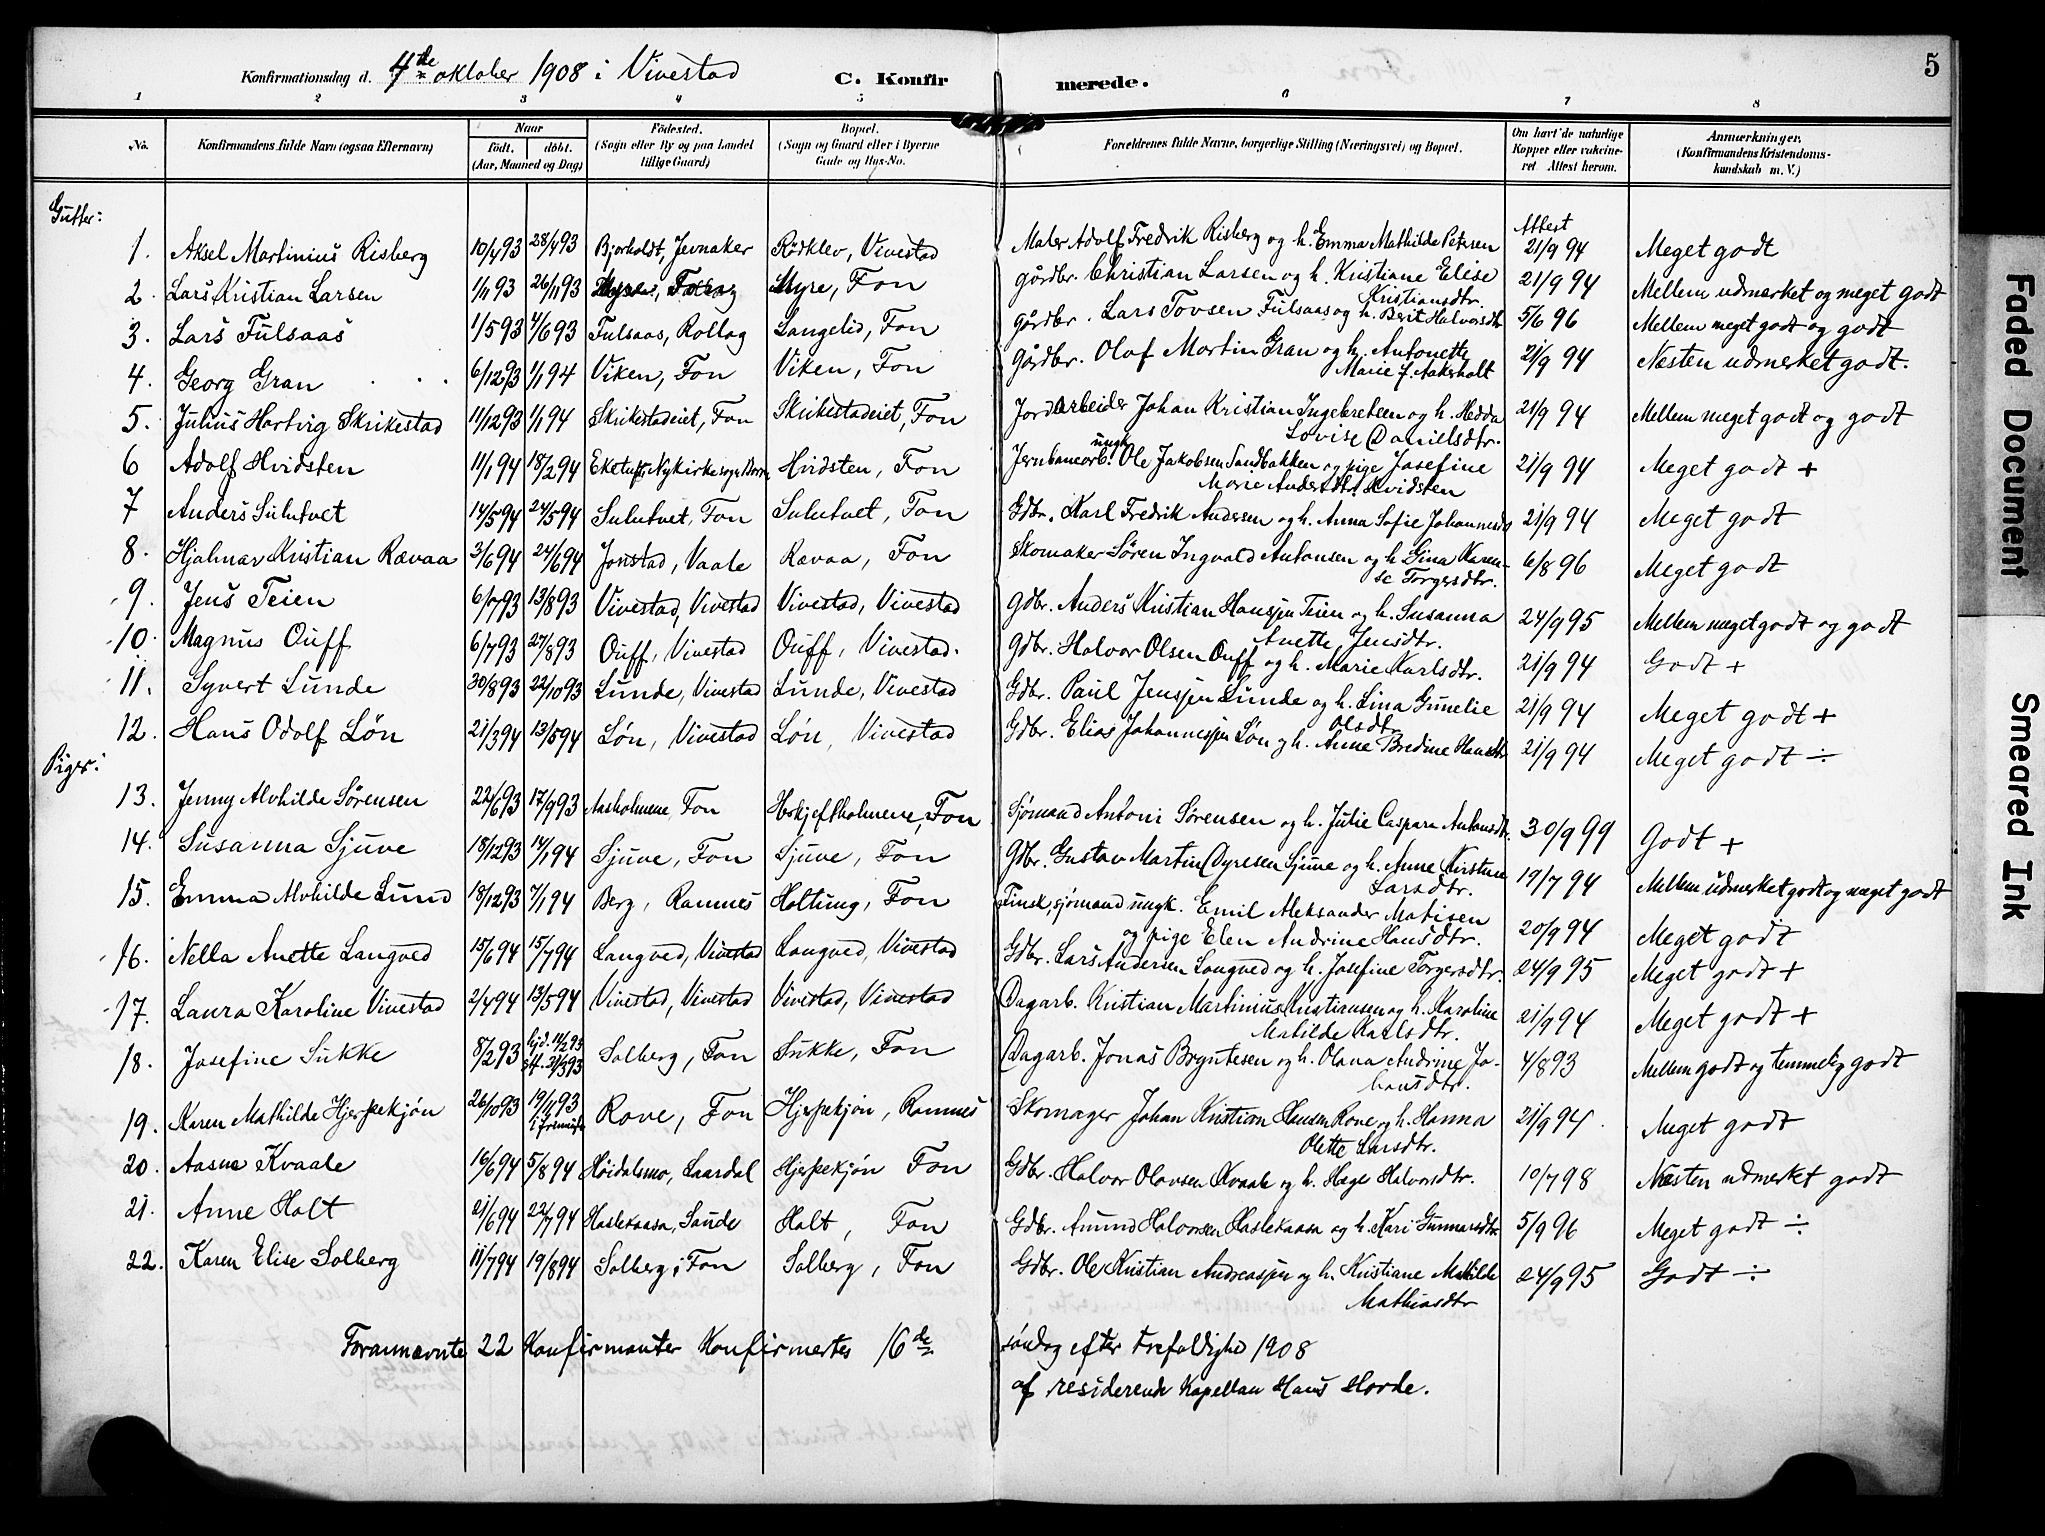 5
Konfirmationsdag d. 4de oktober 1908 i Vivestad C. Konfir merede.
1 2 3 4 5 6 7 8
No. Konfirmandens fulde Navn (ogsaa Efternavn) Naar Födested. Bopæl. Forældrenes fulde Navne, borgerlige Stilling (Næringsvei) og Bopæl. Om havt de naturlige Anmærkninger,
födt. döbt. (Sogn eller By og paa Landet (Sogn og Gaard eller i Byerne Kopper eller vakcine- (Konfirmandens Kristendoms-
(Aar, Maaned og Dag) tillige Gaard) Gade og Hus-No. ret Attest herom. kundskab m. V.)
Gutter: Attest
1. Aksel Martinius Risberg 10/4 93 28/4 93 Bjorholdt, Jevnaker Rödklev, Vivestad Maler Adolf Fredrik Risberg og h. Emma Mathilde Petersen 21/9 94 Meget godt
2. Lars Kristian Larsen 1/11 93 26/11 93 Myre, Fon gårdbr. Christian Larsen og h. Kristiane Elise 21/9 94 Mellem udmerket og meget godt
Kristiansdtr.
3. Lars Fulsaas 1/5 93 4/6 93 Fulsaas, Rollag Langelid, Fon gårdbr. Lars Tovsen Fulsaas og h. Berit Halvorsdtr 5/6 96 Mellem meget godt og godt
4. Georg Gran 6/12 93 1/1 94 Viken, Fon Viken, Fon gårdbr. Olaf Martin Gran og h. Antonette 21/9 94 Næsten udmerket godt.
Marie J. Aakerholt
5. Julius Hartvig Skrikestad 11/12 93 1/1 94 Skrikestadeiet, Fon Skrikestadeiet, Fon Jordarbeider Johan Kristian Ingebretsen og h. Hedda 21/9 94 Mellem meget godt og godt
Lovise Danielsdtr.
6 Adolf Hvidsten 11/1 94 18/2 94 Nykirke sogn Hvidsten, Fon Jernbanearb. ungk. Ole Jakobsen Sandbakken og pige Josefine 21/9 94 Meget godt +
Marie Andersdtr. Hvidsten
7 Anders Sulutvet 14/5 94 24/5 94 Sulutvet, Fon Sulutvet, Fon Gdbr. Karl Fredrik Andersen og h. Anna Sofie Johannesd 21/9 94 Meget godt
8. Hjalmar Kristian Rævaa 3/6 94 24/6 94 Jonstad, Vaale Rævaa, Fon Skomaker Sören Ingvald Antonsen og h. Gina Karen- 6/8 96 Meget godt
se Torgersdtr.
9. Jens Teien 6/7 93 13/8 93 Vivestad, Vivestad Vivestad, Vivestad Gdbr. Anders Kristian Hanssen Teien og h. Susanna 24/9 95 Mellem meget godt og godt
Anette Jensdtr.
10. Magnus Ouff 6/7 93 27/8 93 Ouff, Vivestad Ouff, Vivestad. Gdbr. Halvor Olsen Ouff og h. Marie Karlsdtr. 21/9 94 Godt +
11. Syvert Lunde 30/8 93 22/10 93 Lunde, Vivestad Lunde, Vivestad Gdbr. Paul Jenssen Lunde og h. Lina Gunelie 21/9 94 Meget godt +
Olsdtr.
12. Hans Odolf Lön 21/3 94 13/5 94 Lön, Vivestad Lön, Vivestad Gdbr. Elias Johannessen Lön og h. Anne Bredine Hansdtr 21/9 94 Meget godt ÷
Piger:
13. Jenny Alvhilde Sörensen 22/6 93 17/9 93 Aasholmene Fon Fon Sjömand Antoni Sörensen og h. Julie Caspara Antonsdtr. 30/9 99 Godt +
14. Susanna Sjuve 18/12 93 14/1 94 Sjuve, Fon Sjuve, Fon Gdbr. Gustav Martin Dyresen Sjuve og h. Anne Kirstine 19/7 94 Mellem udmerket godt og meget godt
Larsdtr.
15. Emma Alvhilde Lund 18/12 93 7/1 94 Berg, Ramnes Holtung, Fon Finsk, sjömand ungk. Emil Aleksander Matisen 20/9 94 Meget godt
og pige Elen Andrine Hansdtr.
16. Nella Anette Langved 15/6 94 15/7 94 Langved, Vivestad Langved, Vivestad Gdbr. Lars Andersen Langved og h. Josefine Torgersdtr. 24/9 95 Meget godt +
17. Laura Karoline Vivestad 2/4 94 13/5 94 Vivestad, Vivestad Vivestad, Vivestad Dagarb. Kristian Martinius Kristiansen og h. Karoline 21/9 94 Meget godt +
Matilde Karlsdtr.
18. Josefine Sukke 8/2 93 hjd. 11/2 93 Solberg, Fon Sukke, Fon Dagarb. Jonas Bryntesen og h. Olava Andrine Jo- 4/8 93 Mellem godt og temmelig godt
st. 21/3 93 hansdtr.
19. Karen Mathilde Hjerpekjön 26/10 93 19/11 93 Rove, Fon Hjerpekjön, Ramnes Skomager Johan Kristian Hansen Rove og h. Hanna 21/9 94. Meget godt
Olette Larsdtr.
20. Aasne Kvaale 16/6 94 5/8 94 Höidalsmo, Laardal Hjerpekjön Fon Gdbr. Halvor Olavsen Kvaale og h. Hæge Halvorsdtr. 10/7 98 Næsten udmerket godt
21. Anne Holt 21/6 94 22/7 94 Haslekaasa, Saude Holt, Fon Gdbr. Amund Halvorsen Haslekaasa og h. Kari Gunnarsdtr. 5/9 96 Meget godt ÷
22. Karen Elise Solberg 11/7 94 19/8 94 Solberg, Fon Solberg, Fon Gdbr. Ole Kristian Andreassen og h. Kristiane Matilde 24/9 95 Godt ÷
Mathiasdtr
Forannævnte 22 Konfirmanter Konfirmertes 16de söndag efter trefoldighed 1908
af residerende Kapellan Hans Horde.
Faded Document
Smeared Ink